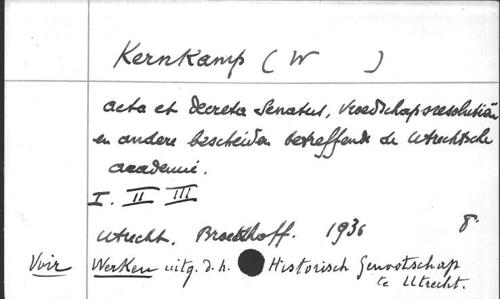 Kernkamp (W )
Acta et Decreta Senatus, Vroedschapsresolutiën
en andere bescheiden betreffende de Utrechtsche
academie.
I. II III
Utrecht. Broekhoff. 1936 8º
Voir Werken uitg. d. h. Historisch Genootschap
te Utrecht.